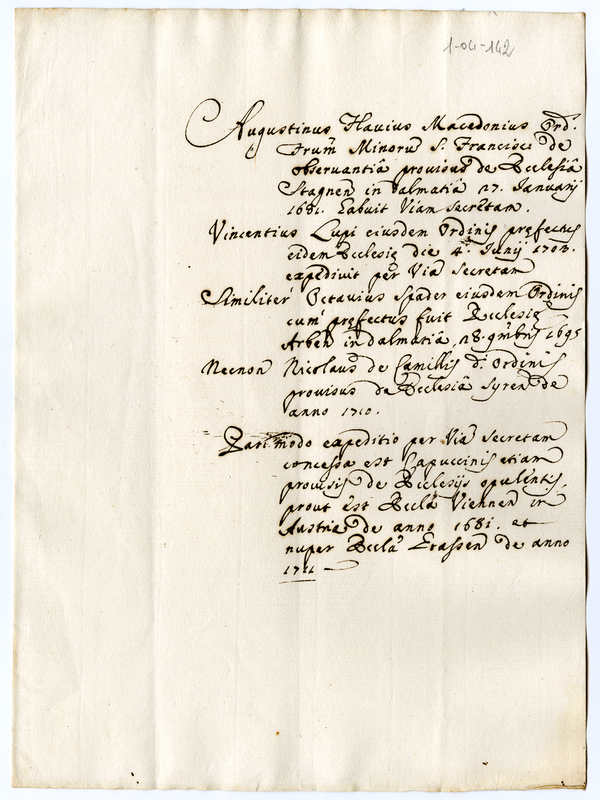 1-04-142
Augustinus Flavius Macedonius Ord.
Frum̄ Minorū S. Francisci de
observantiâ provisus de Ecclesiâ
Stagnen̄ in Dalmatiâ 27. Januarij
1681. habuit Viam Secretam.
Vincentius Lupi eiusdem Ordinis prefectus
eidem Ecclesie die 4ª Junij 1703.
expedivit per Viā Secretam
Similiter Octavius Spader eiusdem Ordinis
cum prefectus fuit Ecclesie
Arben̄ in dalmatiâ, 28. 9mbris 1695
Necnon Nicolaus de Camillis d. Ordinis
provisus de Ecclesiâ Syren̄ de
anno 1710.
Pari modo expeditio per Viā Secretam
concessa est Capuccinis etiam
provisis de Ecclesijs opulentis,
prout est Ecclā Viennen̄ in
Austria de anno 1681. et
nuper Ecclā de anno
1711